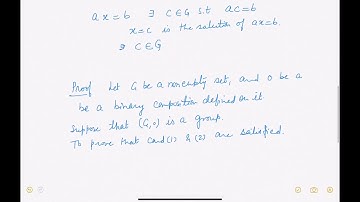 ax = b ∃ c ∈ G s.t ac = b
x = c is the solution of ax = b.
∃ c ∈ G
Proof Let G be a nonempty set, and o be a
be a binary composition defined on it
Suppose that (G, o) is a group.
To prove that cond (1) & (2) are satisfied.